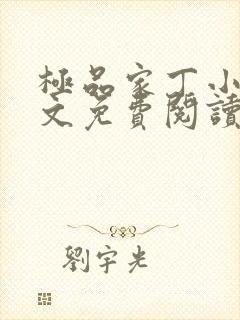 極品家丁小
文免費閱讀
劉宇光